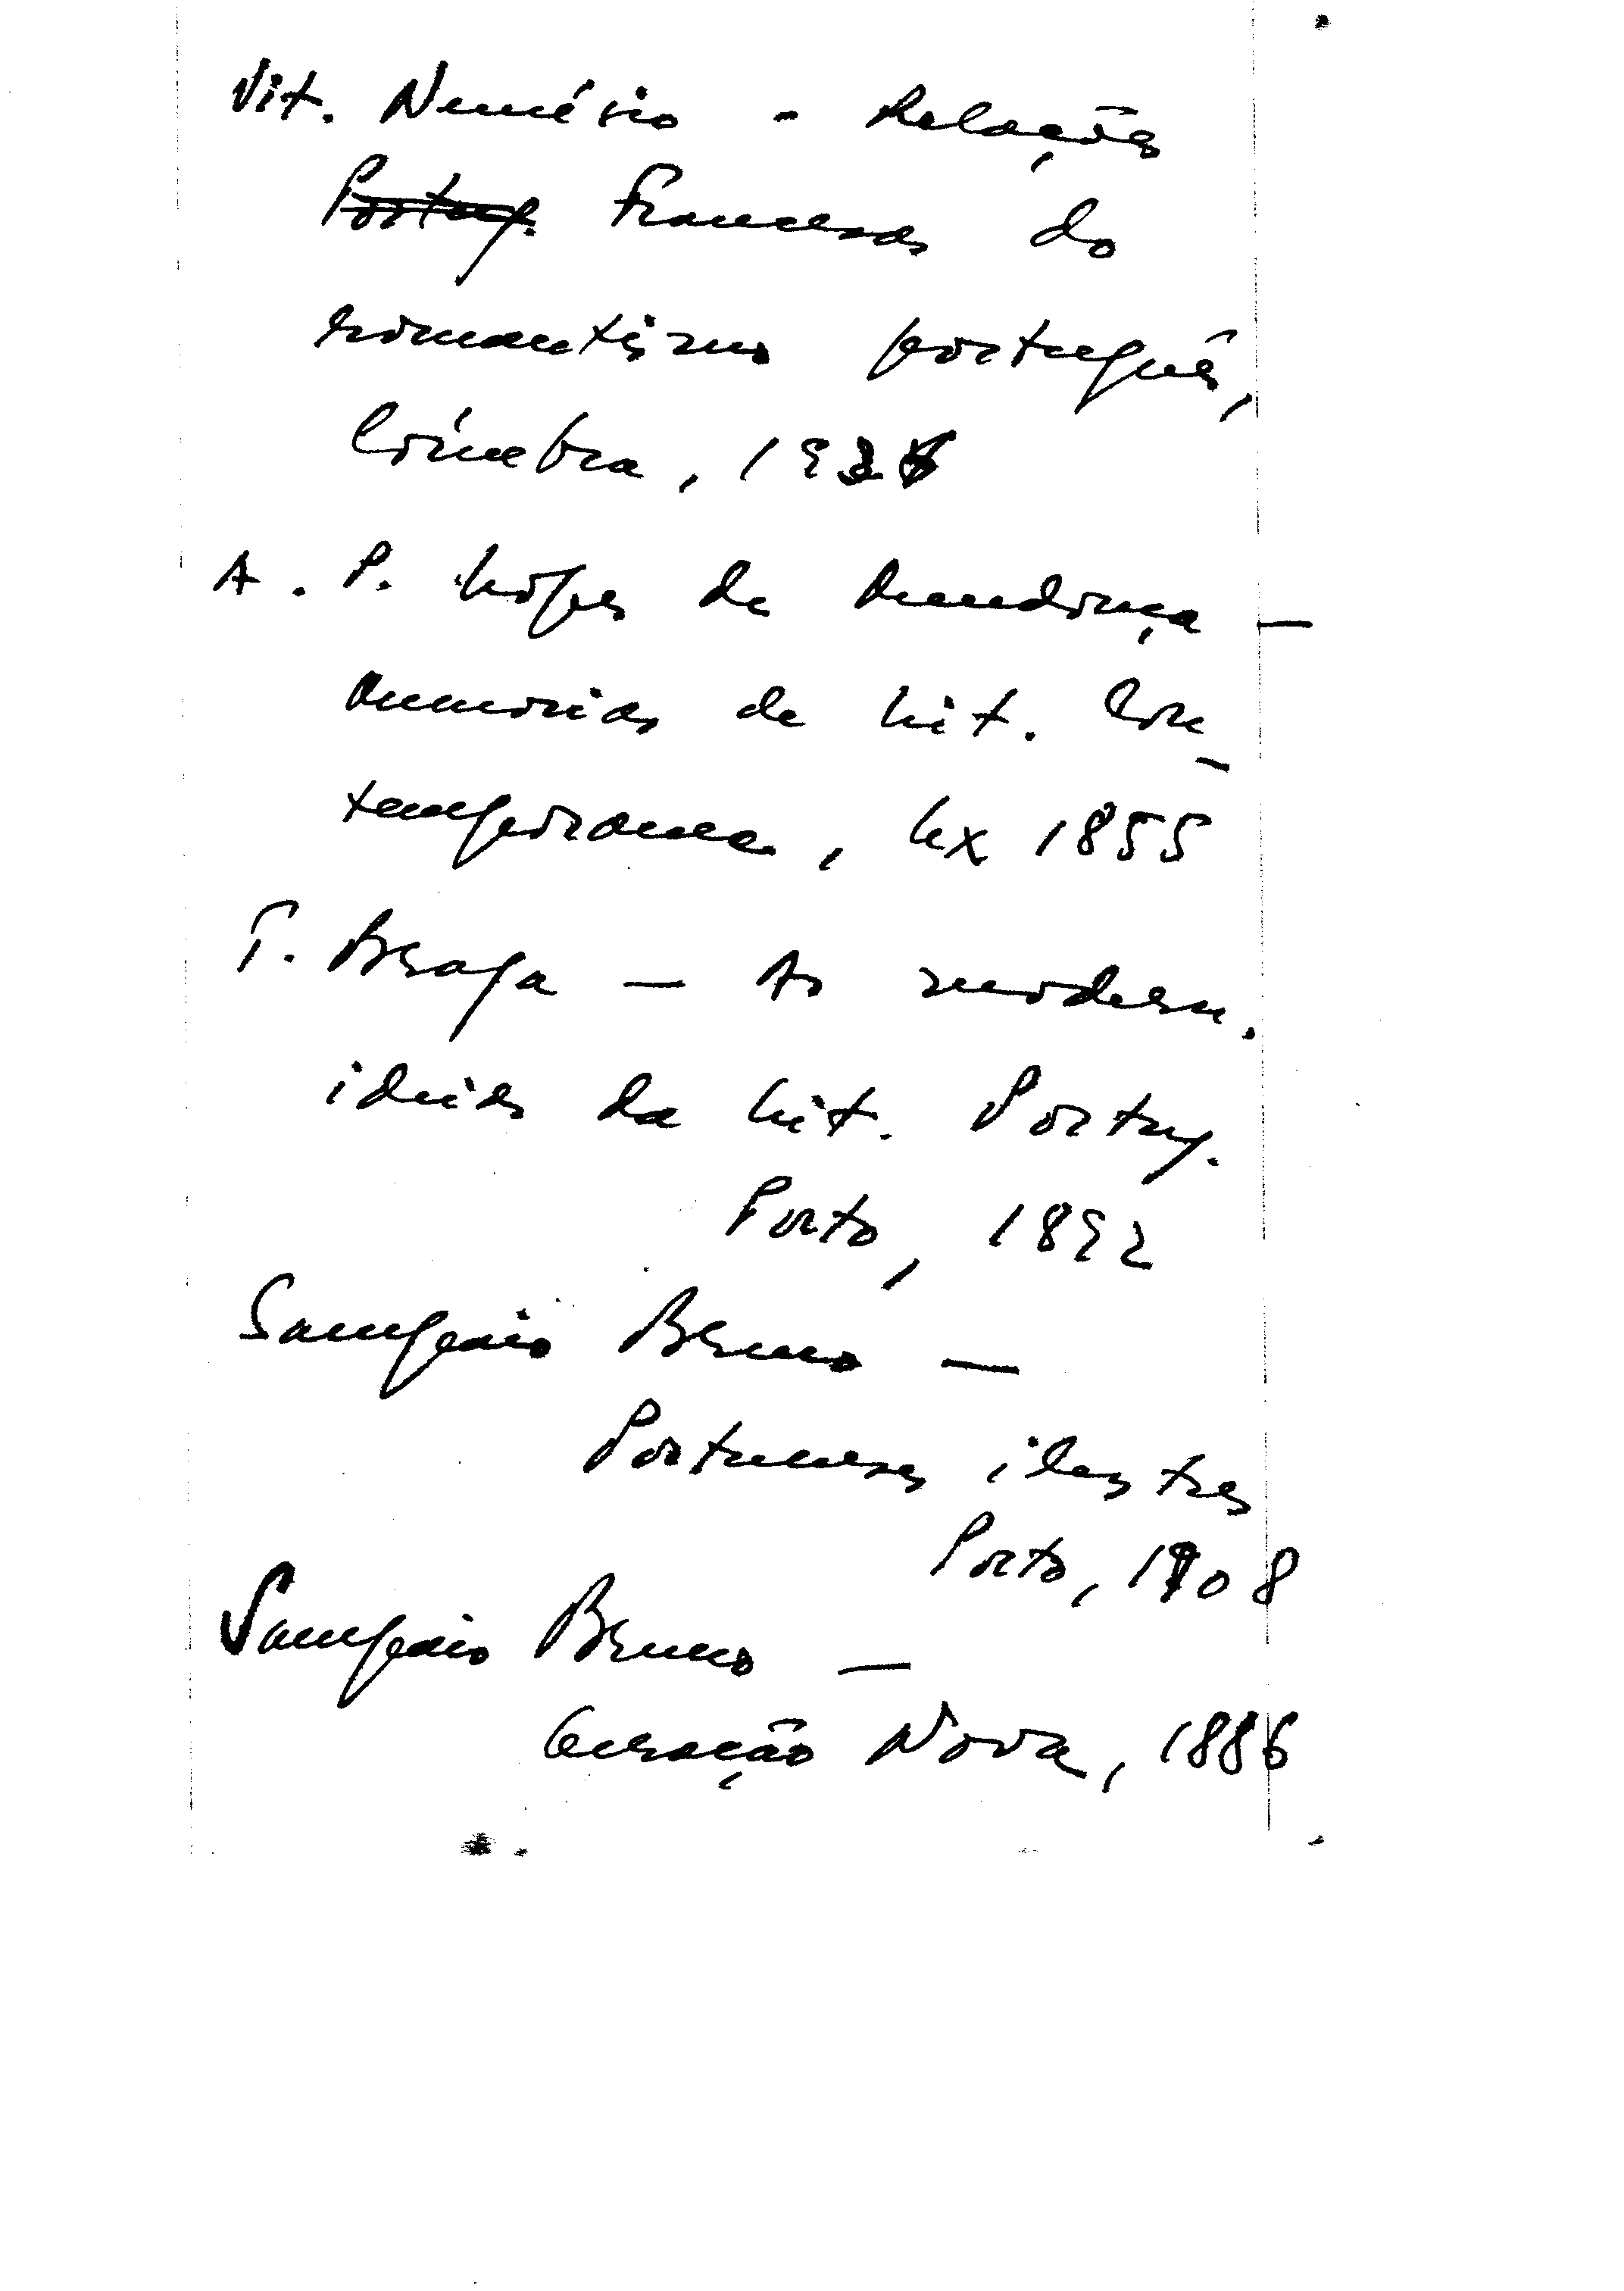 Vit. Nemésio - Relações
Portug. Francesas do
romantismo português,
Coimbra, 1936
A. P. Lopes de Mendonça —
Memorias de Lit. Con-
temporanea, Lx 1855
T. Braga — As modern.
ideias da Lit. Portug.
Porto, 1892
Sampaio Bruno —
Portuenses ilustres
Porto, 1908
Sampaio Bruno —
Geração Nova, 1886